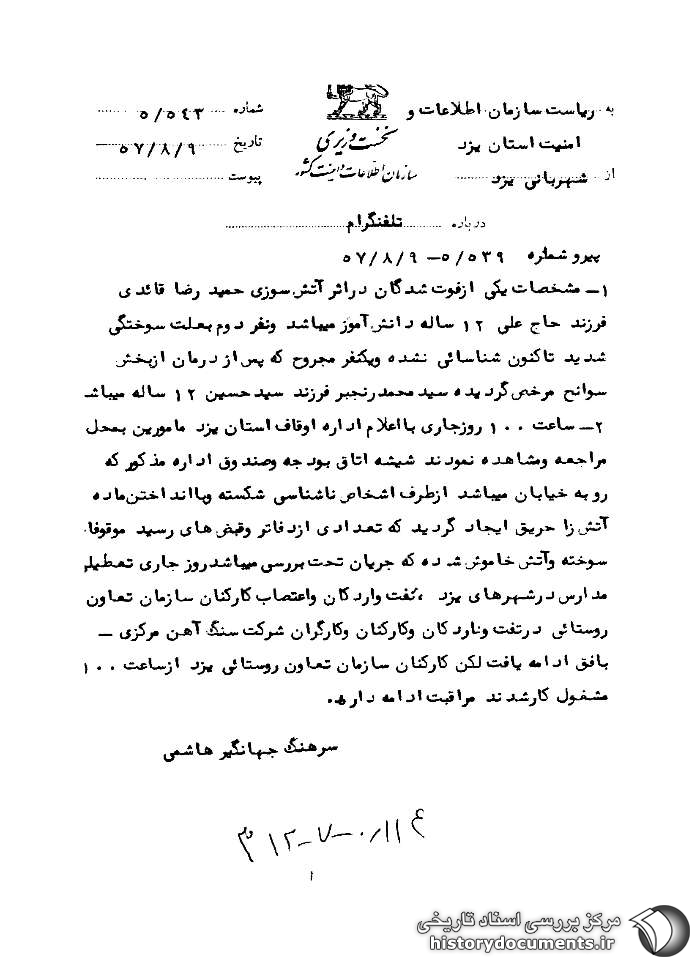 به ریاست سازمان اطلاعات و
امنیت استان یزد
از شهربانی یزد
نخست وزیری
سازمان اطلاعات و امنیت کشور
شماره ۵/۵۴۳
تاریخ ۵۷/۸/۹
پیوست
درباره تلفنگرام
پیرو شماره ۵/۵۳۹ – ۵۷/۸/۹
۱– مشخصات یکی ازفوت شدگان دراثر آتش سوزی حمید رضا قائدی
فرزند حاج علی ۱۲ ساله دانش آموز میباشد ونفر دوم بعلت سوختگی
شدید تاکنون شناسائی نشده ویکنفر مجروح که پس از درمان ازبخش
سوانح مرخص گردیده سید محمد رنجبر فرزند سید حسین ۱۲ ساله میباشد
۲– ساعت ۱۰۰ روزجاری بااعلام اداره اوقاف استان یزد مامورین بمحل
مراجعه ومشاهده نمودند شیشه اتاق بودجه وصندوق اداره مذکور که
رو به خیابان میباشد ازطرف اشخاص ناشناسی شکسته وباانداختن ماده
آتش زا حریق ایجاد گردید که تعدادی ازدفاتر وقبض های رسید موقوفات
سوخته وآتش خاموش شده که جریان تحت بررسی میباشد روز جاری تعطیلی
مدارس درشهرهای یزد ، تفت واردکان واعتصاب کارکنان سازمان تعاون
روستائی درتفت واردکان وکارکنان وکارگران شرکت سنگ آهن مرکزی –
بافق ادامه یافت لکن کارکنان سازمان تعاون روستائی یزد ازساعت ۱۰۰
مشغول کارشدند مراقبت ادامه دارد.
سرهنگ جهانگیر هاشمی
۱
مرکز بررسی اسناد تاریخی
historydocuments.ir